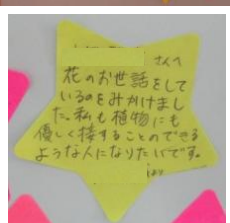 さんへ
花のお世話をして
いるのをみかけまし
た。私も植物にも
優しく接することのできる
ような人になりたいです。
より